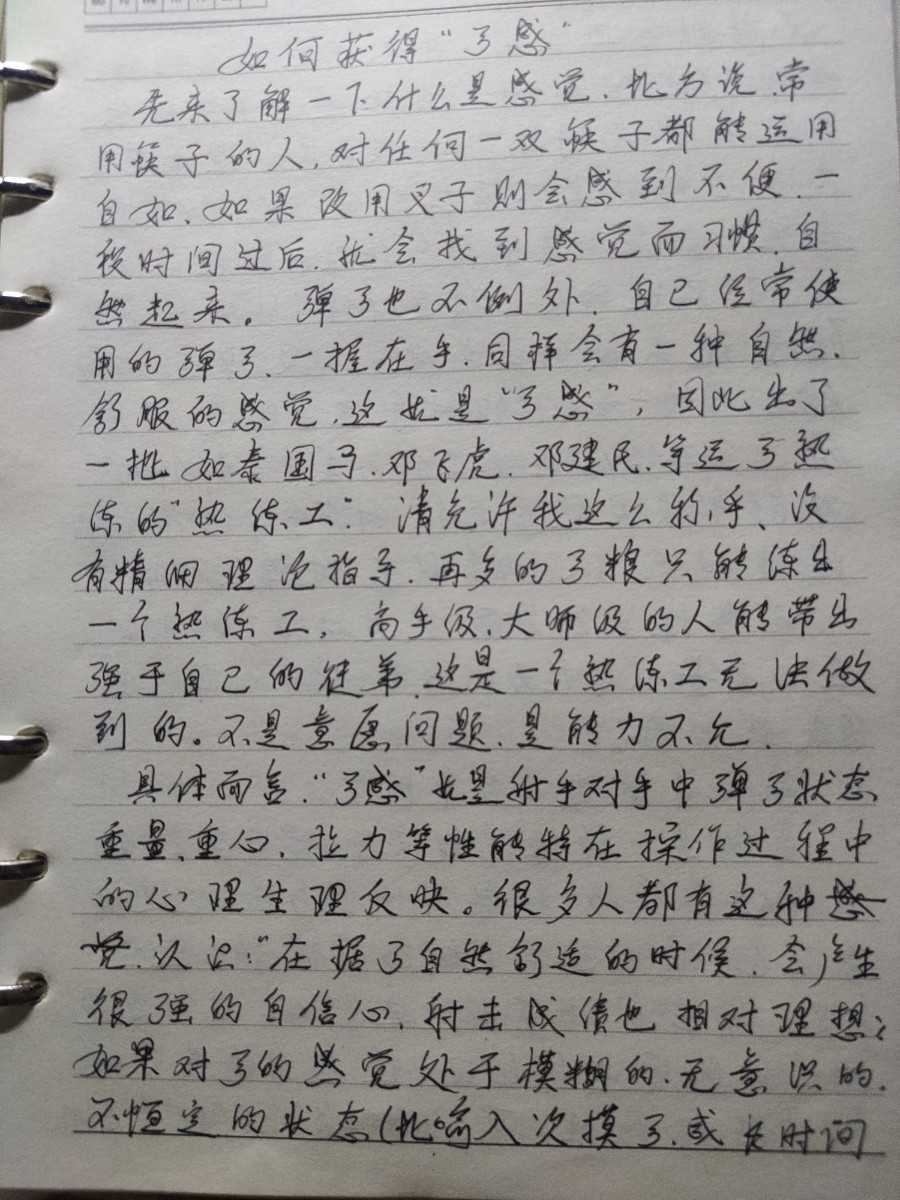 如何获得“弓感”
先来了解一下什么是感觉.比方说.常
用筷子的人.对任何一双筷子都能运用
自如.如果改用叉子则会感到不便.一
段时间过后.就会找到感觉而习惯.自
然起来。弹弓也不例外.自己经常使
用的弹弓.一握在手.同样会有一种自然.
舒服的感觉.这就是“弓感”,因此出了
一批如泰国马.邓飞虎.邓建民.等运弓热
练的“热练工”.请允许我这么称乎、没
有精细理论指导.再多的弓粮只能练出
一个热练工,高手级.大师级的人能带出
强于自己的徒弟.这是一个热练工无法做
到的。不是意愿问题.是能力不允.
具体而言.“弓感”就是射手对手中弹弓状态
重量、重心,拉力等性能特在操作过程中
的心理生理反映。很多人都有这种感
觉.认识:“在据弓自然舒适的时候.会产生
很强的自信心,射击成绩也相对理想;
如果对弓的感觉处于模糊的.无意识的.
不恒定的状态(比喻入次摸弓.或长时间